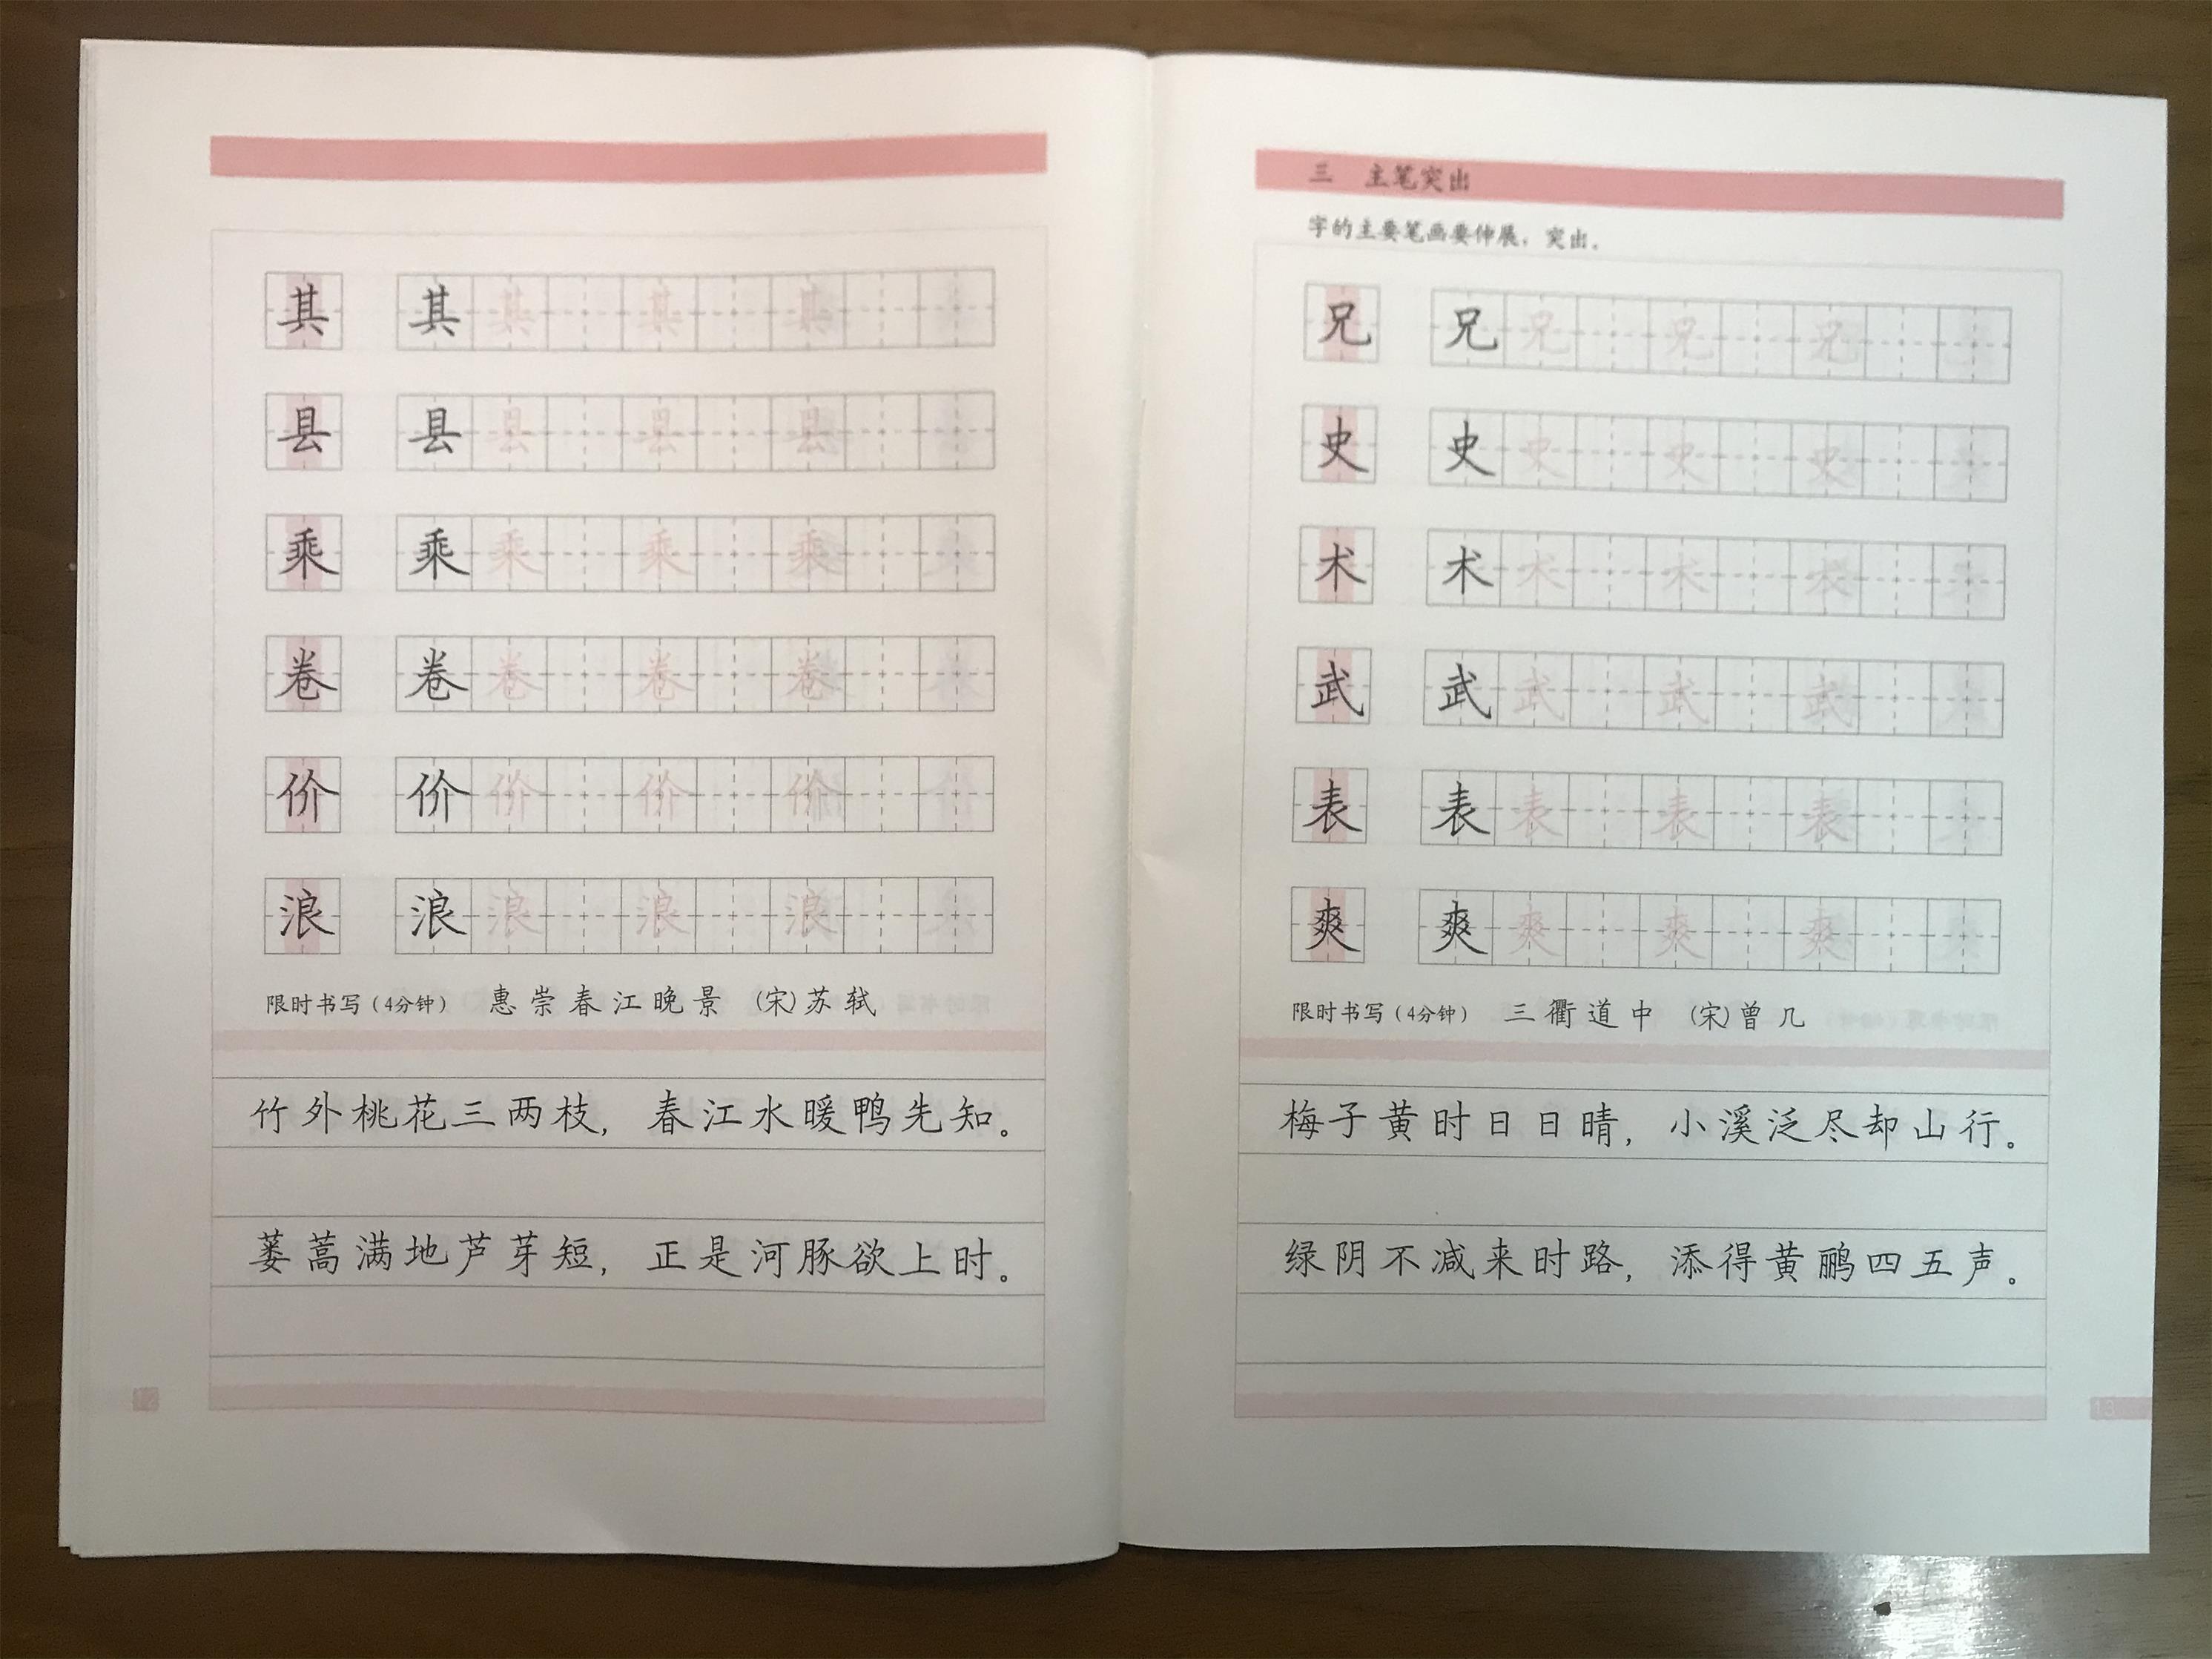 其 其 其 其 其
县 县 县 县 县
乘 乘 乘 乘 乘
卷 卷 卷 卷 卷
价 价 价 价 价
浪 浪 浪 浪 浪
限时书写（4分钟） 惠崇春江晚景 （宋）苏轼
竹外桃花三两枝，春江水暖鸭先知。
蒌蒿满地芦芽短，正是河豚欲上时。
12
三 主笔突出
字的主要笔画要伸展，突出。
兄 兄 兄 兄 兄
史 史 史 史 史
术 术 术 术 术
武 武 武 武 武
表 表 表 表 表
爽 爽 爽 爽 爽
限时书写（4分钟） 三衢道中 （宋）曾几
梅子黄时日日晴，小溪泛尽却山行。
绿阴不减来时路，添得黄鹂四五声。
13